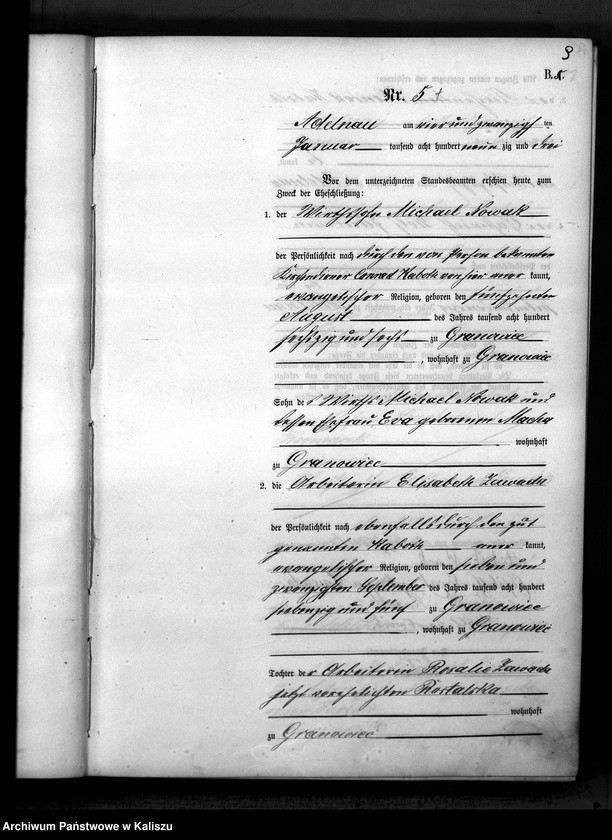 9
B.
Nr. 5
Adelnau am vier und zwanzigsten
Januar tausend acht hundert neunzig und drei
Vor dem unterzeichneten Standesbeamten erschien heute zum
Zweck der Eheschließung:
1. der Wirthssohn Michael Nowak
der Persönlichkeit nach durch den von Person bekannten
Kirchendiener Conrad von hier anerkannt,
evangelischer Religion, geboren den fünfzehnten
August des Jahres tausend acht hundert
sechszig und sechs zu Granowiec
, wohnhaft zu Granowiec
Sohn des Wirths Michael Nowak und
dessen Ehefrau Eva geborenen Macha
wohnhaft
zu Granowiec
2. die Arbeiterin Elisabeth Zawada
der Persönlichkeit nach ebenfalls durch den
genannten anerkannt,
evangelischer Religion, geboren den sieben und
zwanzigsten September des Jahres tausend acht hundert
siebenzig und fünf zu Granowiec
, wohnhaft zu Granowiec
Tochter der Arbeiterin Rosalie Zawada
jetzt verehelichten
wohnhaft
zu Granowiec
Archiwum Państwowe w Kaliszu